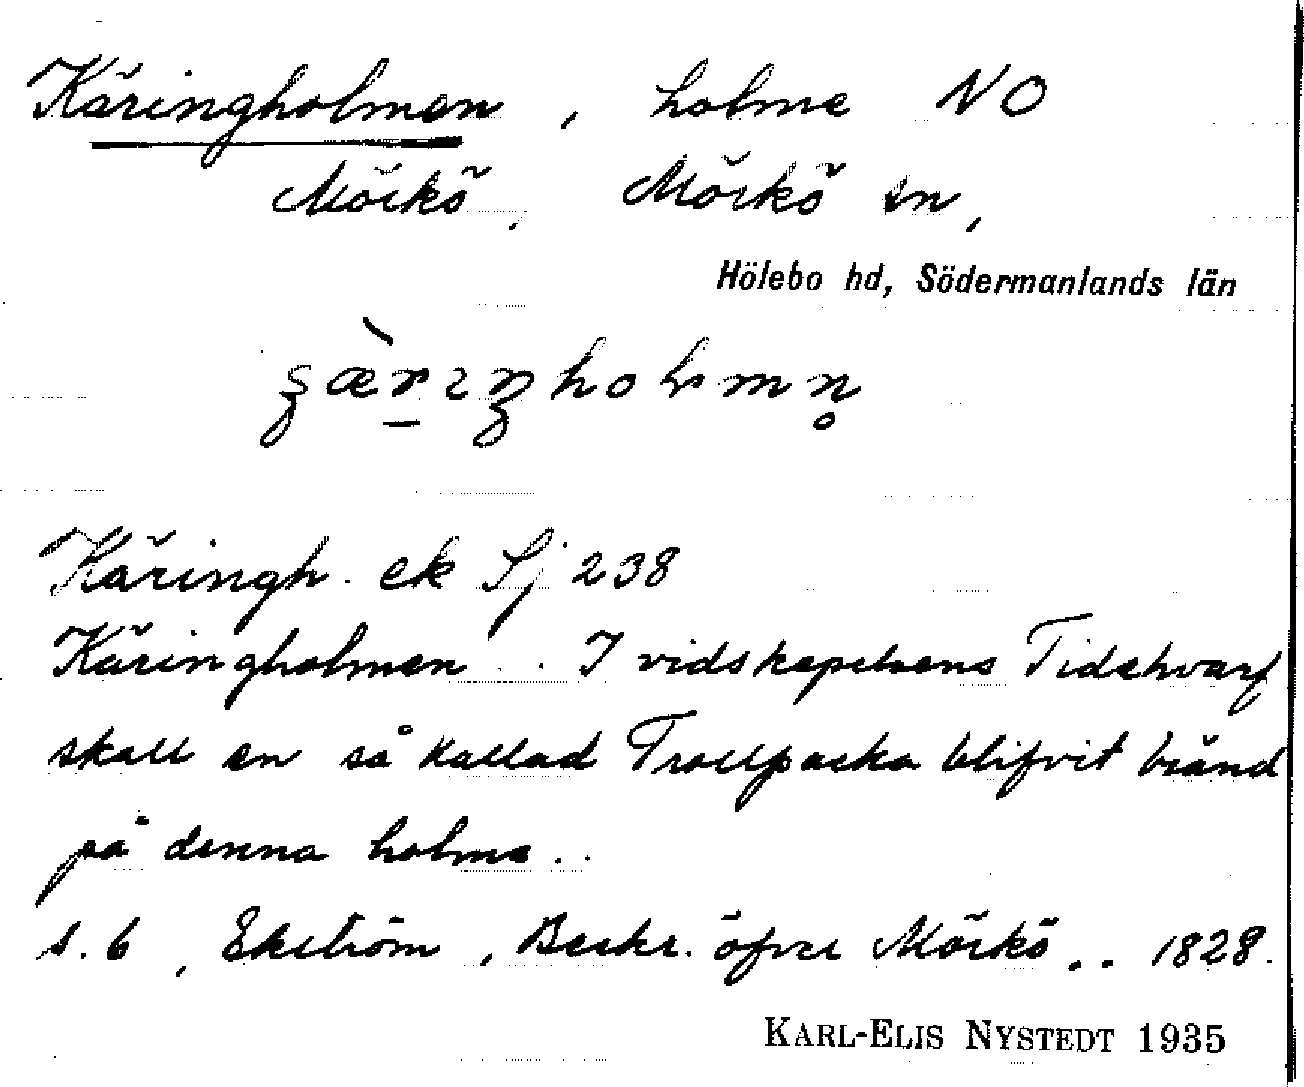 Käringholmen, holme NO
Mörkö, Mörkö sn,
Hölebo hd, Södermanlands län
Käringh. ek Sj 238
Käringholmen .. I vidskepelsens Tidehvarf
skall en så kallad Trollpacka blifvit bränd
på denna holme..
s. 6, Ekström, Beskr. öfver Mörkö.. 1828.
KARL-ELIS NYSTEDT 1935